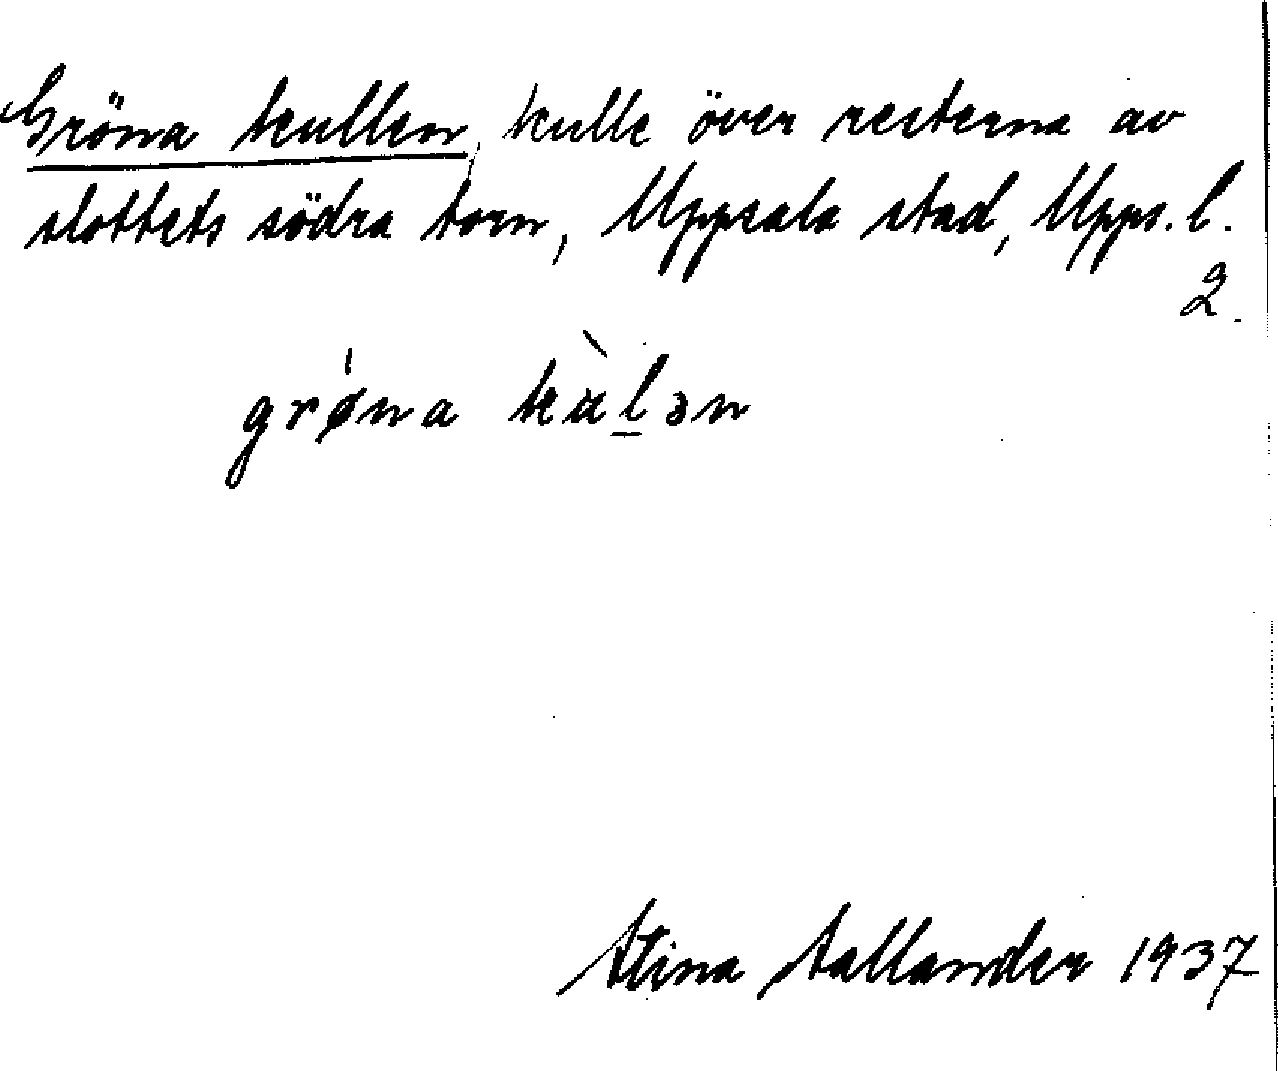 Gröna kullen, kulle över resterna av
slottets södra torn, Uppsala stad, Upps. l.
2.
grǿna kàl̲ən
Stina Sallander 1937